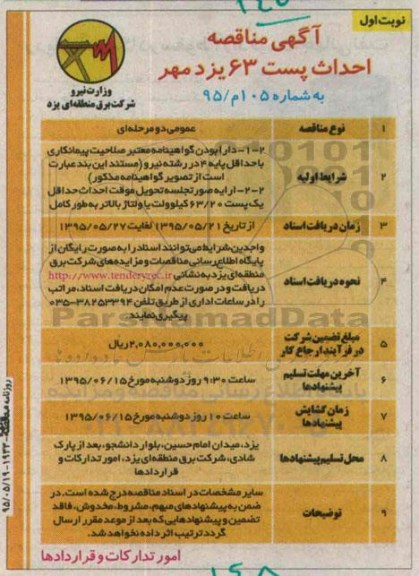 نوبت اول
آگهی مناقصه
احداث پست ۶۳ یزد مهر
به شماره ۱۰۵م/۹۵
وزارت نیرو
شرکت برق منطقه‌ای یزد
۱ نوع مناقصه عمومی دو مرحله‌ای
۲ شرایط اولیه ۱-۲- دارا بودن گواهینامه معتبر صلاحیت پیمانکاری
با حداقل پایه ۴ در رشته نیرو (مستند این بند عبارت
است از تصویر گواهینامه مذکور)
۲-۲- ارایه صورتجلسه تحویل موقت احداث حداقل
یک پست ۶۳/۲۰ کیلوولت یا ولتاژ بالاتر به طور کامل
۳ زمان دریافت اسناد از تاریخ ۱۳۹۵/۰۵/۲۱ لغایت ۱۳۹۵/۰۵/۲۷
۴ نحوه دریافت اسناد واجدین شرایط می‌توانند اسناد را به صورت رایگان از
پایگاه اطلاع‌رسانی مناقصات و مزایده‌های شرکت برق
منطقه‌ای یزد به نشانی http://www.tenderyrec.ir
دریافت و در صورت عدم امکان دریافت اسناد، مراتب
را در ساعات اداری از طریق تلفن ۳۸۲۵۳۳۹۴-۰۳۵
پیگیری نمایند.
۵ مبلغ تضمین شرکت
در فرآیند ارجاع کار ۲,۰۸۰,۰۰۰,۰۰۰ ریال
۶ آخرین مهلت تسلیم
پیشنهادها ساعت ۹:۳۰ روز دوشنبه مورخ ۱۳۹۵/۰۶/۱۵
۷ زمان گشایش
پیشنهادها ساعت ۱۰ روز دوشنبه مورخ ۱۳۹۵/۰۶/۱۵
۸ محل تسلیم پیشنهادها یزد، میدان امام حسین، بلوار دانشجو، بعد از پارک
شادی، شرکت برق منطقه‌ای یزد، امور تدارکات و
قراردادها
۹ توضیحات سایر مشخصات در اسناد مناقصه درج شده است. در
ضمن به پیشنهادهای مبهم، مشروط، مخدوش، فاقد
تضمین و پیشنهادهایی که بعد از موعد مقرر ارسال
گردد ترتیب اثر داده نخواهد شد.
امور تدارکات و قراردادها
ParsNamadData